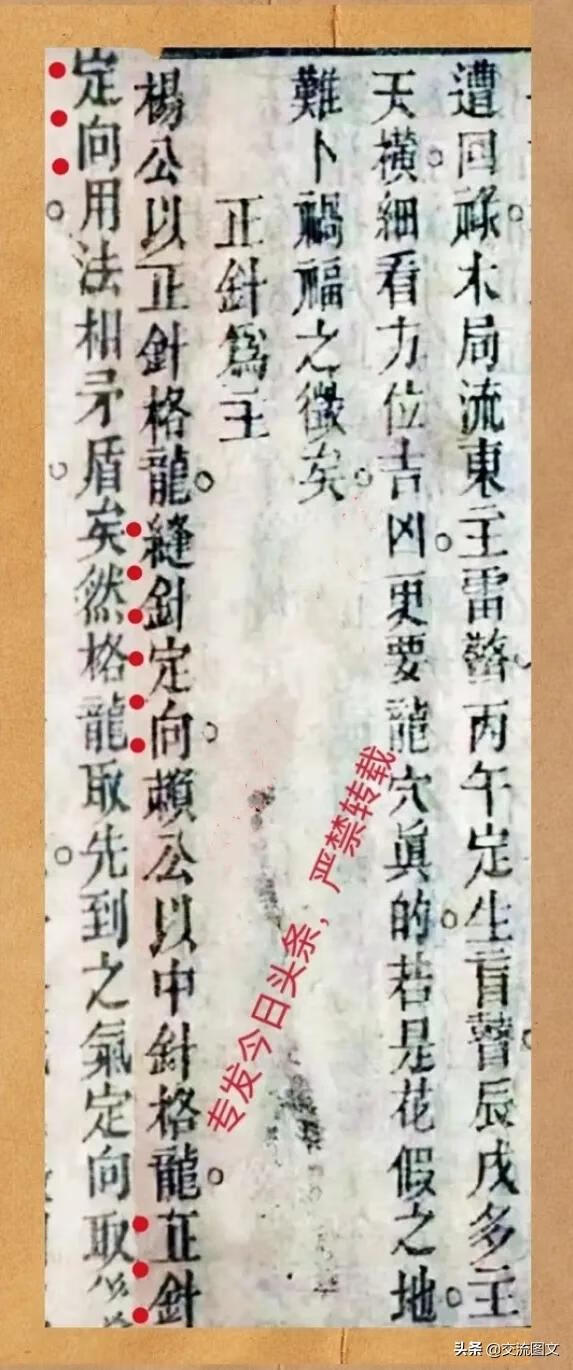 遭回祿木局流東主雷警丙午定生盲瞽辰戌多主
天橫細看方位吉凶更要龍穴眞的若是花假之地
難卜禍福之徵矣
正針爲主
楊公以正針格龍縫針定向賴公以中針格龍正針
定向用法相矛盾矣然格龍取先到之氣定向取
专发今日头条，严禁转载
头条 @交流图文